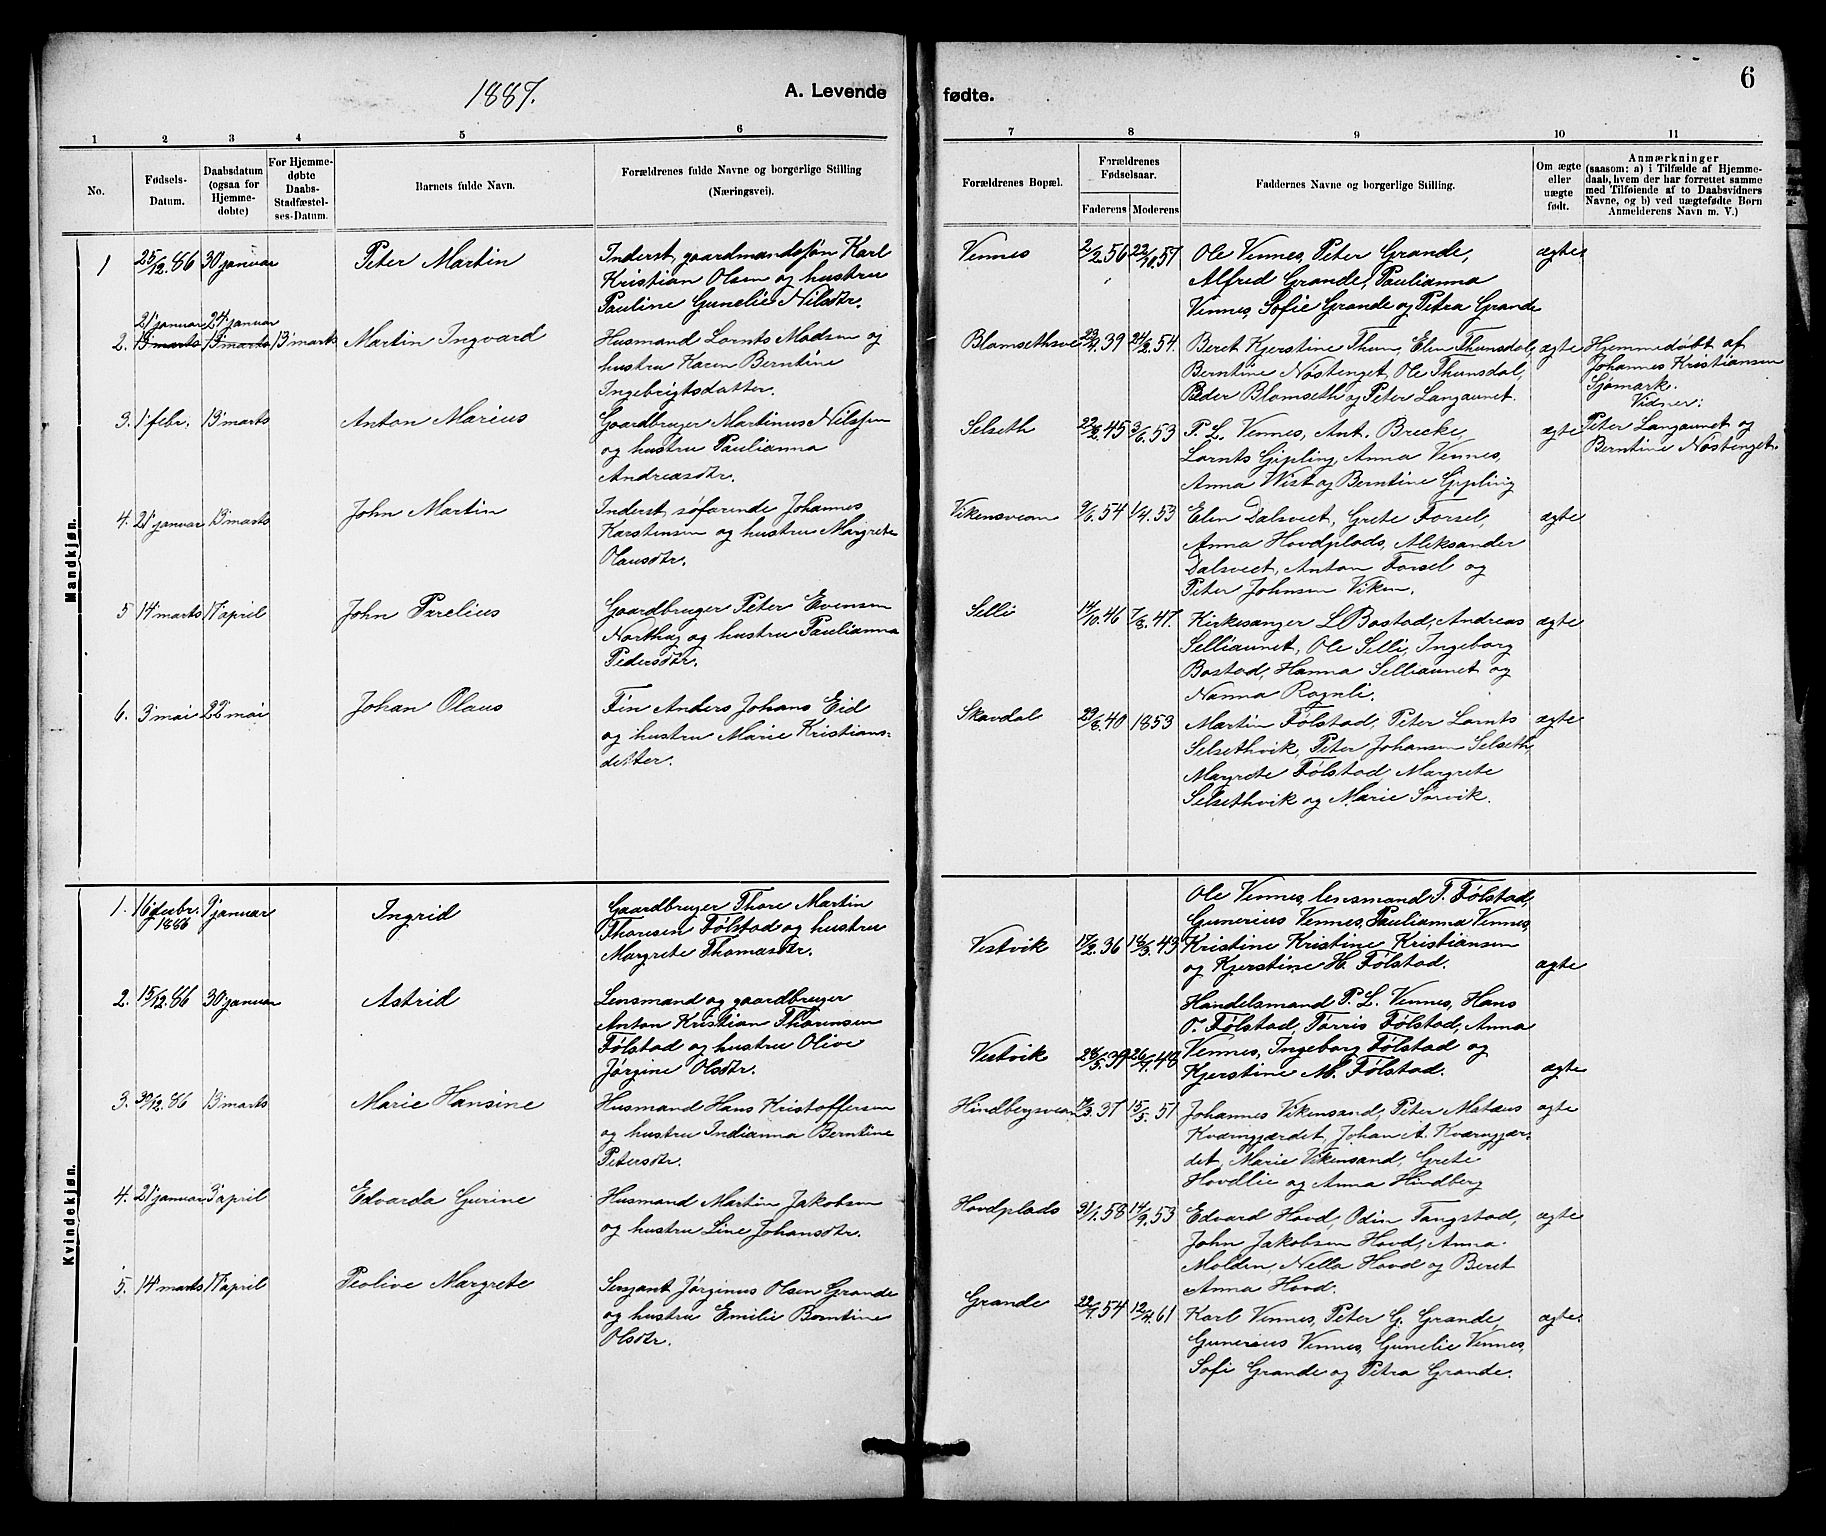 1887.
A. Levende
fødte.
6
1 2 3 4 5 6
7 8 9 10 11
No.
Fødsels-
Datum.
Daabsdatum
(ogsaa for
Hjemme-
døbte)
For Hjemme-
døbte
Daabs-
Stadfæstel-
ses-Datum.
Barnets fulde Navn.
Forældrenes fulde Navne og borgerlige Stilling
(Næringsvei).
Forældrenes Bopæl.
Forældrenes
Fødselsaar.
Faderens
Moderens
Faddernes Navne og borgerlige Stilling.
Om ægte
eller
uægte
født.
Anmærkninger
(saasom: a) i Tilfælde af Hjemme-
daab, hvem der har forrettet samme
med Tilføiende af to Daabsvidners
Navne, og b) ved uægtefødte Børn
Anmelderens Navn m. V.)
Mandkjøn.
1 25/12.86 30 januar Peter Martin
Inderst, gaardmandssøn Karl
Kristian Olsen og hustru
Pauline Gunelie Nilsdtr.
Vennes 2/2.56 22/10.57
Ole Vennes, Peter Grande,
Alfred Grande, Paulianna
Vennes, Sofie Grande og Petra Grande
ægte
21' januar 24' januar
2. 13 marts 13 marts 13' marts Martin Ingvard
Husmand Lornts Madsen og
hustru Karen Berntine
Ingebrigtsdatter.
Blomsethsve 39 24/2.54.
Beret Kjerstine Thun, Elen Thunsdal,
Berntine Nøstenget, Ole Thunsdal,
Peder Blomseth og Peter Langaunet.
ægte
Hjemmedøbt af
Johannes Kristiansen
Sjømark.
Vidner:
Peter Langaunet og
Berntine Nøstenget.
3. 1' febr. 13' marts Anton Marius
Gaardbruger Martinus Nilssen
og hustru Paulianna
Andreasdtr.
Selseth 45 3/6.53
P. L. Vennes, Ant. Brecke,
Lornts Gipling, Anna Vennes,
Anna Wist og Berntine Gipling
ægte
4. 21' januar 13' marts John Martin
Inderst, søfarende Johannes
Karstensen og hustru Margrete
Olausdtr.
Vikensveam 9/6.54 1/4.53
Elen Dalsveet, Grete Forsel,
Anna Hovdplads, Aleksander
Dalsveet, Anton Forsel og
Peter Johnsen Viken.
ægte
5 14' marts 17' april John Parelius
Gaardbruger Peter Evensen
Northug og hustru Paulianna
Pedersdtr.
Selli 14/10.46 7/8.47.
Kirkesanger L Bostad, Andreas
Selliaunet, Ole Selli, Ingeborg
Bostad, Hanna Selliaunet og
Nanna Rognli.
ægte
6. 3' mai 22' mai Johan Olaus
Fin Anders Johans Eid
og hustru Marie Kristians-
datter.
Skavdal 29/8.40 1853
Martin Følstad, Peter Lornts
Selsethvik, Peter Johansen Selseth,
Margrete Følstad Margrete
Selsethvik og Marie Sørvik.
ægte
Kvindekjøn.
1. 16' febr. 1886 9' januar Ingrid
Gaardbruger Thore Martin
Thoresen Følstad og hustru
Margrete Thomasdtr.
Vestvik 17/2.36 18/3.43
Ole Vennes, lensmand T. Følstad,
Gunerius Vennes, Paulianna Vennes,
Kristine Kristine Kristiansen
og Kjerstine H. Følstad.
ægte
2. 15/12.86 30' januar Astrid
Lensmand og gaardbruger
Anton Kristian Thorensen
Følstad og hustru Olive
Jørgine Olsdtr.
Vestvik 28/5.39 48
Handelsmand P. L. Vennes, Hans
O. Følstad, Tørris Følstad, Anna
Vennes, Ingeborg Følstad og
Kjerstine M. Følstad.
ægte
3. 30/12.86 13' marts Marie Hansine
Husmand Hans Kristoffersen
og hustru Indianna Berntine
Petersdtr.
Hindbergsveam 37 15/5.51
Johannes Vikensand, Peter Mataus
Kværngjærdet, Johan A. Kværngjær-
det, Marie Vikensand, Grete
Hovdlie og Anna Hindberg
ægte
4. 21' januar 3' april Edvarda Gurine
Husmand Martin Jakobsen
og hustru Line Johansdtr.
Hovdplads 58 14/9.53
Edvard Hovd, Odin Tangstad,
John Jakobsen Hovd, Anna
Molden, Nella Hovd og Beret
Anna Hovd.
ægte
5. 14' marts 17' april Peolive Margrete
Sersjant Jørginus Olsen Grande
og hustru Emilie Berntine
Olsdtr.
Grande 22/7.54 12/4.61
Karl Vennes, Peter G. Grande,
Gunerius Vennes, Gunelie Vennes,
Sofi Grande og Petra Grande.
ægte.